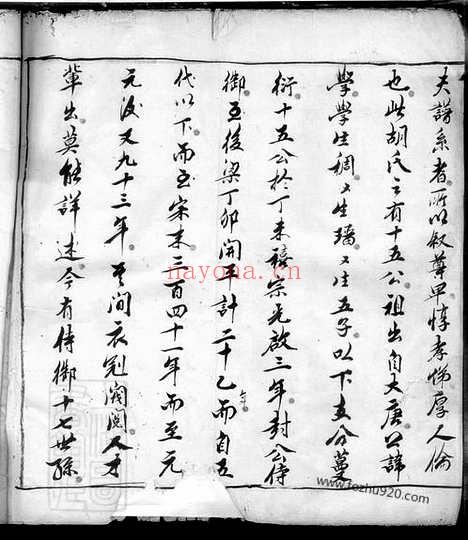 夫譜系者所以敘尊卑惇孝悌厚人倫
也此胡氏之有十五公祖出自大唐公諱
學學生稠〻生璠〻生五子以下支分蔓
衍十五公於丁未禧宗光啟三年封公侍
御至後梁丁卯開平計二十乙年而自五
代以下而至宋末三百四十一年而至元
元後又九十三年其間衣冠閥閱人才
輩出莫能詳述今有侍御十七世孫
nayona.cn
www.fozhu920.com